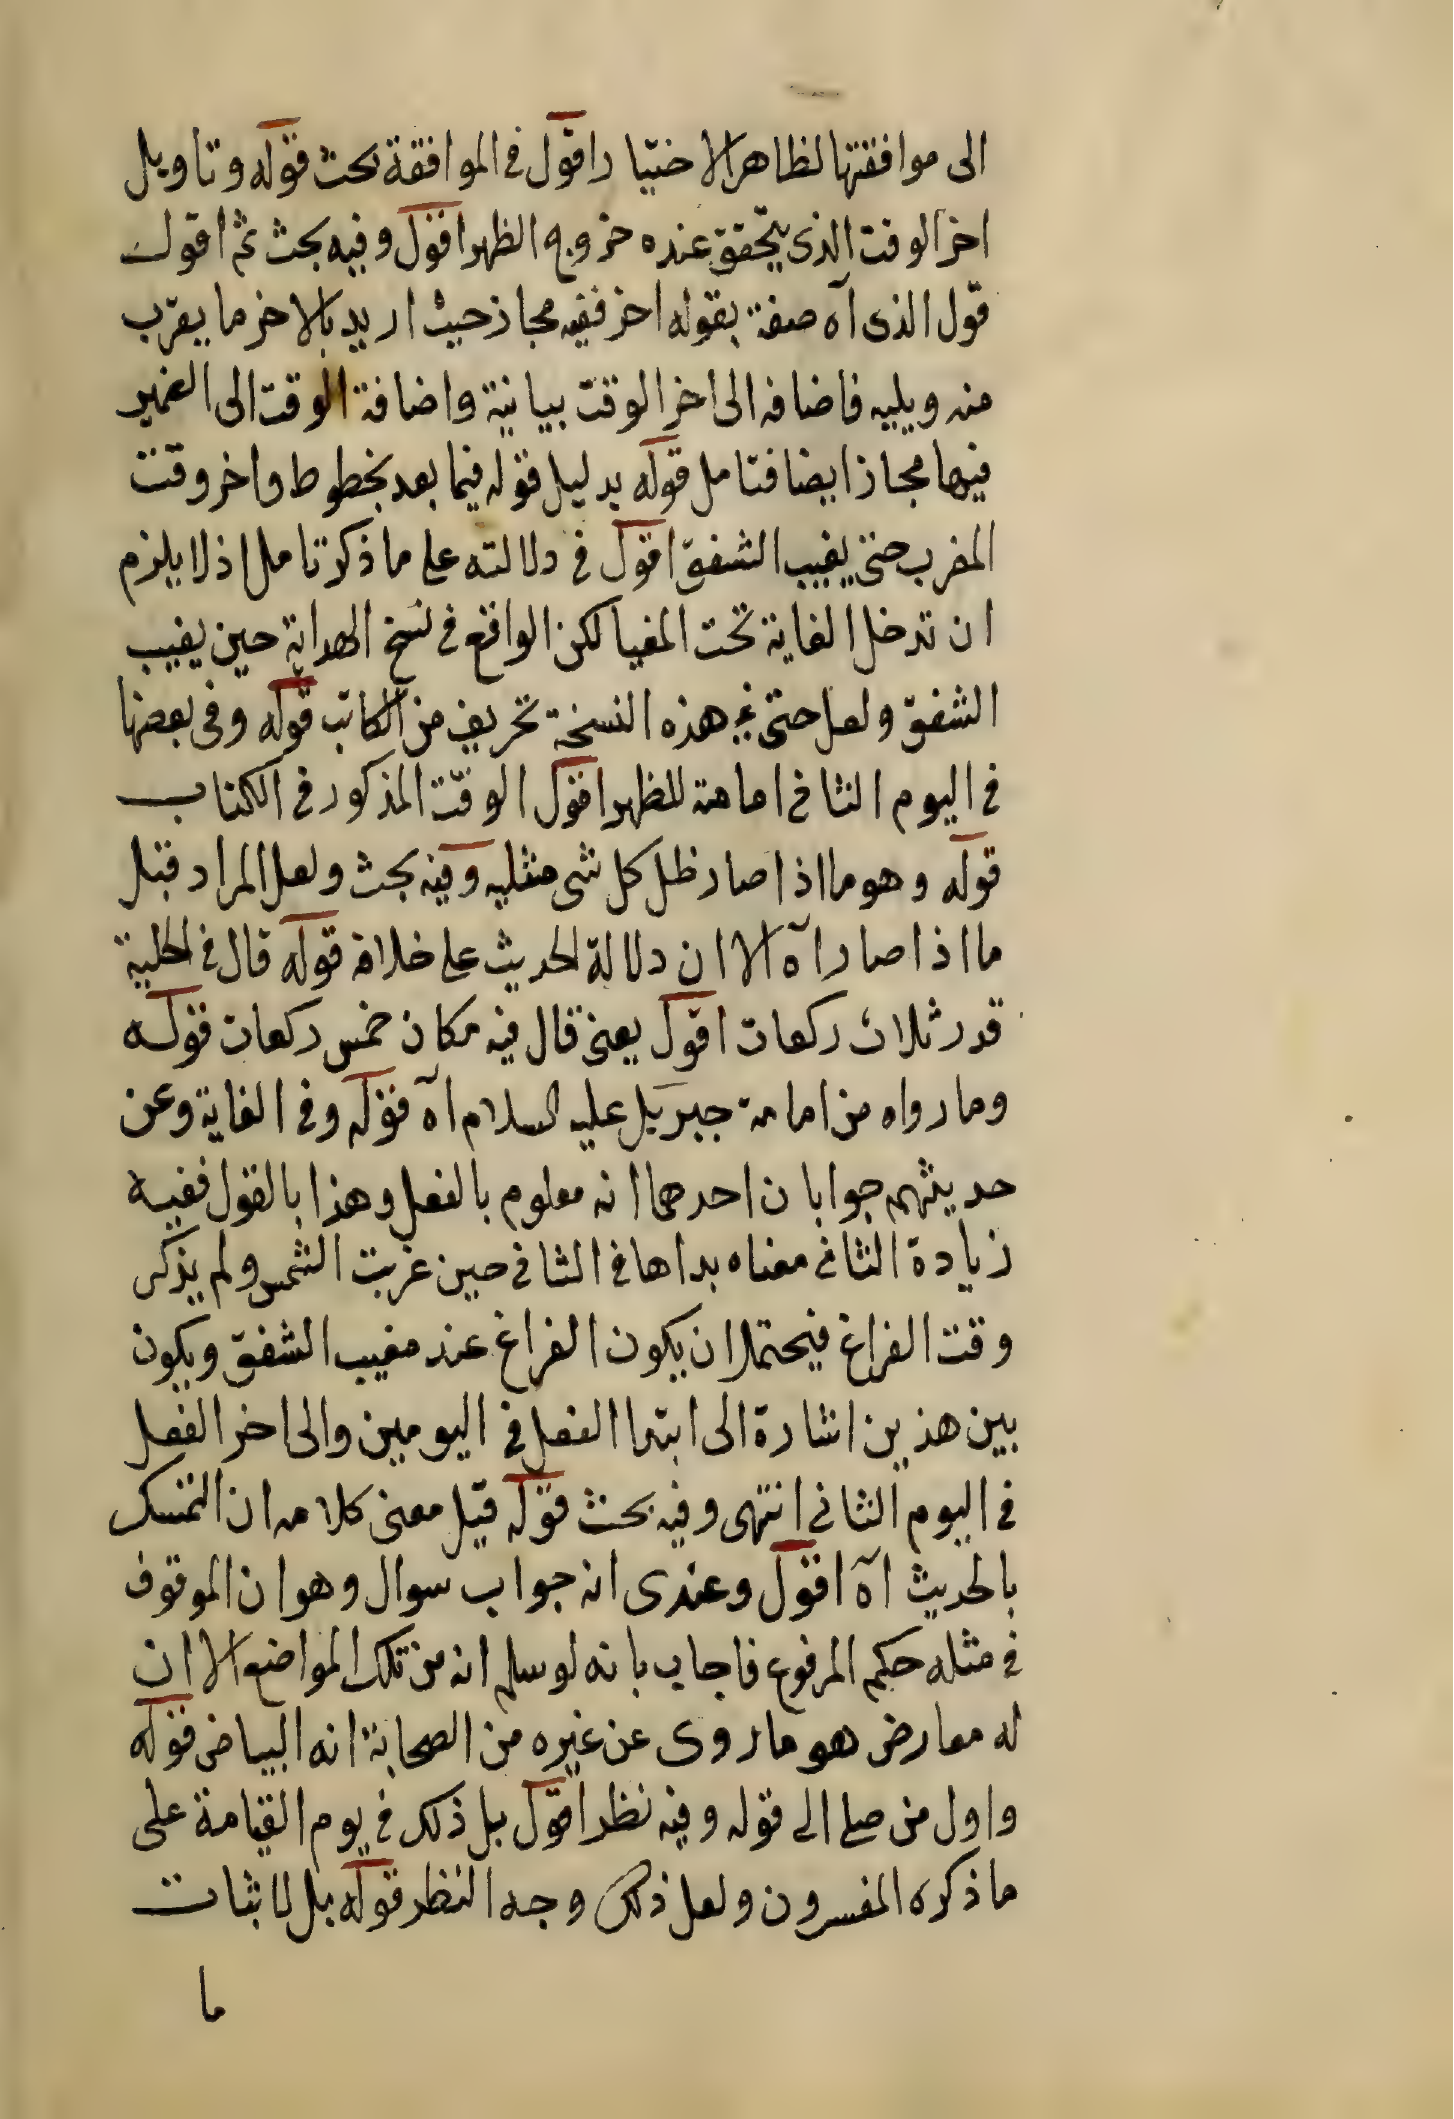 الى موافقتها لظاهر الاختيار اقول في الموافقة بحث قوله وتاويل
اخر الوقت الذى يتحقق عنده خروج الظهر اقول وفيه بحث ثم اقول
قول الذى آه صفة بقوله اخر ففيه مجاز حيث اريد بالاخر ما يقرب
منه ويليه فاضافه الى اخر الوقت بيانية واضافة الوقت الى الضمير
فيها مجاز ايضا فتامل قوله بدليل قوله فيما بعد بخطوط واخر وقت
المغرب حتى يغيب الشفق اقول في دلالته على ما ذكر تامل اذ لا يلزم
ان تدخل الغاية تحت المغيا لكن الواقع في نسخ الهداية حين يغيب
الشفق ولعل حتى في هذه النسخة تحريف من الكاتب قوله وفى بعضها
في اليوم الثاني امامته للظهر اقول الوقت المذكور في الكتاب
قوله وهو ما اذا صار ظل كل شى مثليه وفيه بحث ولعل المراد قبل
ما اذا صار آه الا ان دلالة الحديث على خلافه قوله قال في الحلية
قدر ثلاث ركعات اقول يعنى قال فيه مكان خمس ركعات قوله
وما رواه من امامة جبريل عليه السلام آه قوله وفي الغاية وعن
حديثهم جوابان احدهما انه معلوم بالفعل وهذا بالقول ففيه
زيادة الثاني معناه بداها في الثاني حين غربت الشمس ولم يذكر
وقت الفراغ فيحتمل ان يكون الفراغ عند مغيب الشفق ويكون
بين هذين اشارة الى ابتدا الفعل في اليومين والى اخر الفعل
في اليوم الثاني انتهى وفيه بحث قوله قيل معنى كلامه ان التمسك
بالحديث آه اقول وعندى انه جواب سوال وهو ان الموقوف
في مثله حكم المرفوع فاجاب بانه لو سلم انه من تلك المواضع الا ان
له معارض هو ما روى عن غيره من الصحابة انه البياض قوله
واول من صلى الى قوله وفيه نظر اقول بل ذلك في يوم القيامة على
ما ذكره المفسرون ولعل ذلك وجه النظر قوله بل لاثبات
ما